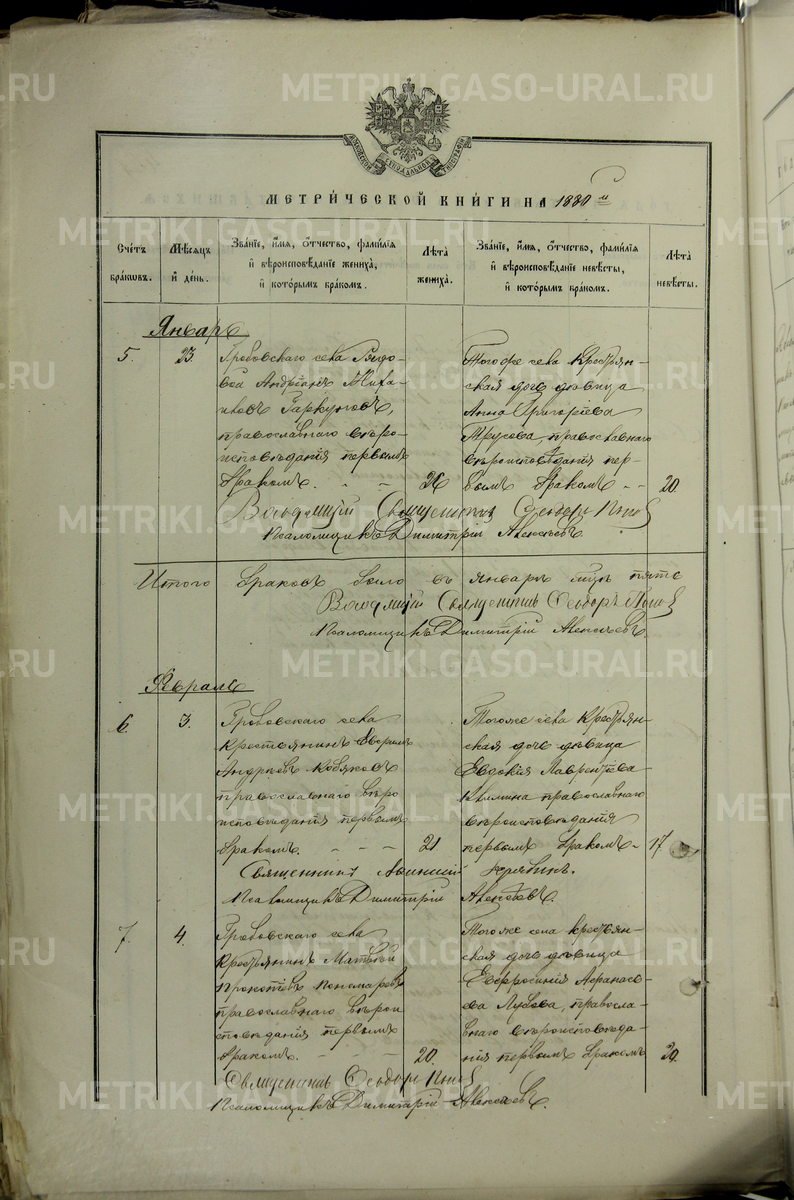 METRIKI.GASO-URAL.RU
МЕТРИ́ЧЕСКОЙ КНИ́ГИ НА 1880 й
Сче́тъ бра́ковъ.
Мѣ́сяцъ и де́нь.
Зва́нїе, и́мя, о́тчество, фами́лїя и вѣроисповѣ́данїе жениха́, и кото́рымъ бра́комъ.
Лѣта̀ жениха̀.
Зва́нїе, и́мя, о́тчество, фами́лїя и вѣроисповѣ́данїе невѣ́сты, и кото́рымъ бра́комъ.
Лѣта̀ невѣ́сты.
Январь
5. 23.
Гробовскаго села Рядо-
вой Андріанъ Миха-
иловъ
православнаго вѣро-
исповѣданія первымъ
бракомъ. - - 26
Тогоже села Крестьян-
ская дочь дѣвица
Анна Григоріева
Трусова, православнаго
вѣроисповѣданія пер-
вымъ бракомъ - - 20.
Священникъ Ѳеодоръ
Псаломщикъ Димитрій Алексѣевъ
Итого браковъ было въ январѣ мцѣ пять
Священникъ Ѳеодоръ
Псаломщикъ Димитрій Алексѣевъ.
Февраль
6 3.
Гробовскаго села
Крестьянинъ
Андреевъ Кобяковъ
православнаго вѣро
исповѣданія первымъ
бракомъ. - - - 21
Тогоже села Крестьян-
ская дочь дѣвица
Евдокія Лаврентьева
православнаго
вѣроисповѣданія
первымъ бракомъ - 17
Священникъ
Псаломщикъ Димитрій Алексѣевъ.
7. 4.
Гробовскаго села
Крестьянинъ Матвей
Прокопьевъ Пономаревъ
православнаго вѣрои
сповѣданія первымъ
бракомъ. - - - 20.
Тогоже села крестьян-
ская дочь дѣвица
Евфросинія Афанась
ева православ-
наго вѣроисповѣда-
нія первымъ бракомъ 20.
Священникъ Ѳеодоръ
Псаломщикъ Димитрій Алексѣевъ.